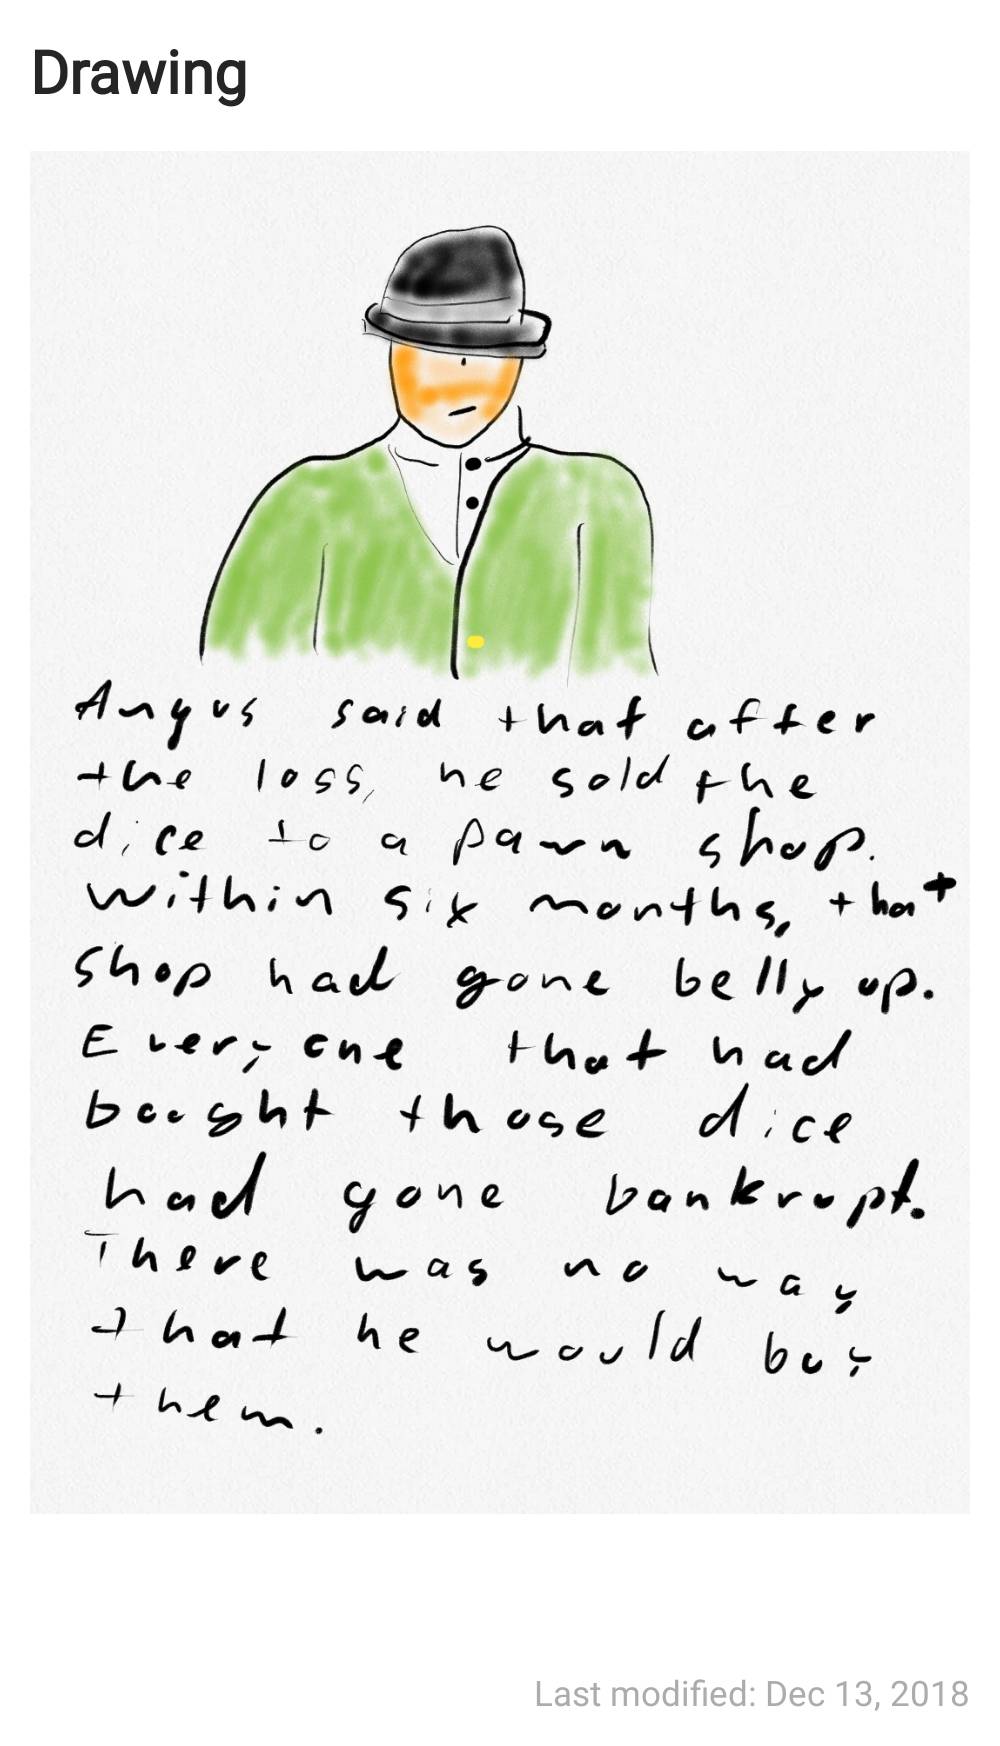 Drawing
Angus said that after
the loss, he sold the
dice to a pawn shop.
Within six months, that
shop had gone belly up.
Everyone that had
bought those dice
had gone bankrupt.
There was no way
that he would buy
them.
Last modified: Dec 13, 2018